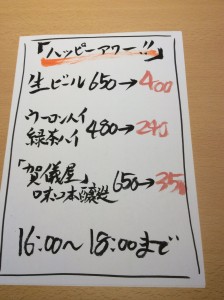 「ハッピーアワー!!」
生ビール 650→400
ウーロンハイ
緑茶ハイ 480→240
「賀儀屋」
味口本醸造 650→35
16:00〜18:00まで